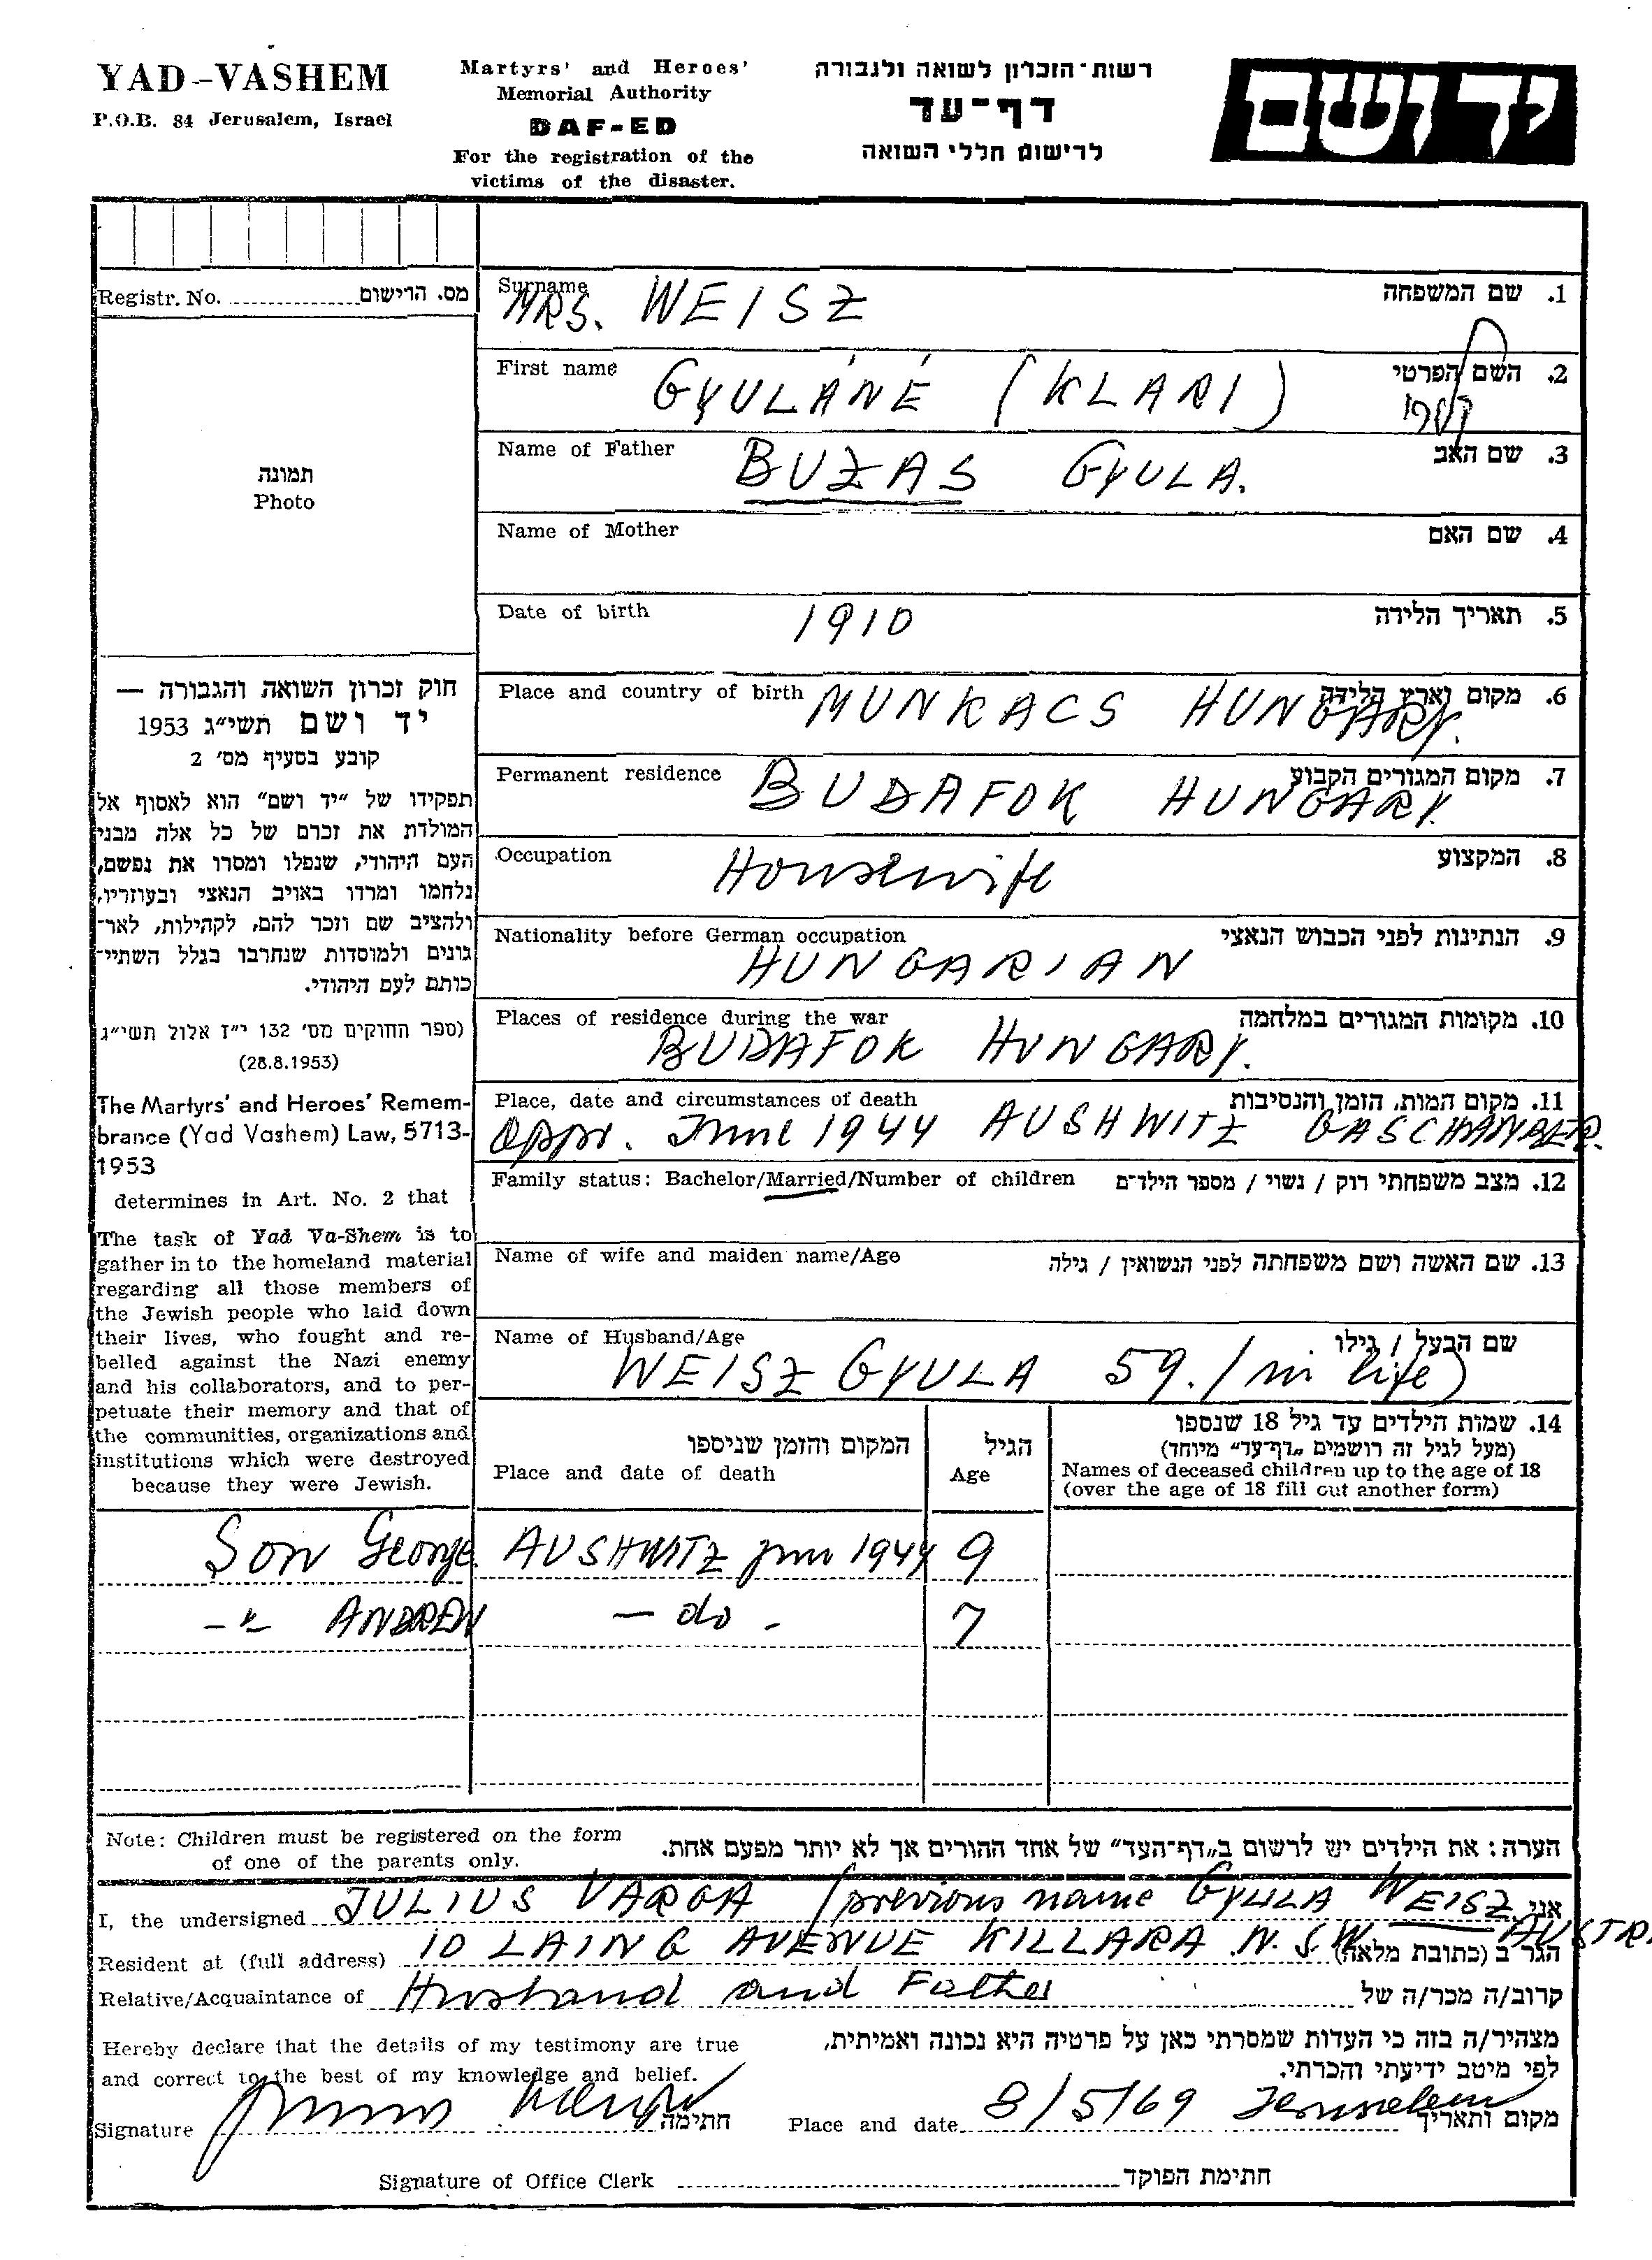 YAD-VASHEM
P.O.B. 84 Jerusalem, Israel
Martyrs' and Heroes'
Memorial Authority
DAF-ED
For the registration of the
victims of the disaster.
רשות־הזכרון לשואה ולגבורה
דף־עד
לרישום חללי השואה
יד ושם
Registr. No. מס. הרישום
תמונה
Photo
חוק זכרון השואה והגבורה —
יד ושם תשי״ג 1953
קובע בסעיף מס׳ 2
תפקידו של ״יד ושם״ הוא לאסוף אל
המולדת את זכרם של כל אלה מבני
העם היהודי, שנפלו ומסרו את נפשם,
נלחמו ומרדו באויב הנאצי ובעוזריו,
ולהציב שם וזכר להם, לקהילות, לאר־
גונים ולמוסדות שנחרבו בגלל השתיי־
כותם לעם היהודי.
(ספר החוקים מס׳ 132 י״ז אלול תשי״ג
(28.8.1953)
The Martyrs' and Heroes' Remem-
brance (Yad Vashem) Law, 5713-
1953
determines in Art. No. 2 that
The task of Yad Va-Shem is to
gather in to the homeland material
regarding all those members of
the Jewish people who laid down
their lives, who fought and re-
belled against the Nazi enemy
and his collaborators, and to per-
petuate their memory and that of
the communities, organizations and
institutions which were destroyed
because they were Jewish.
Surname 1. שם המשפחה
MRS. WEISZ
First name 2. השם הפרטי
GYULÁNÉ (KLARI)
Name of Father 3. שם האב
BUZAS GYULA.
Name of Mother 4. שם האם
Date of birth 5. תאריך הלידה
1910
Place and country of birth 6. מקום וארץ הלידה
MUNKACS HUNGARY.
Permanent residence 7. מקום המגורים הקבוע
BUDAFOK HUNGARY
Occupation 8. המקצוע
Housewife
Nationality before German occupation 9. הנתינות לפני הכבוש הנאצי
HUNGARIAN
Places of residence during the war 10. מקומות המגורים במלחמה
BUDAFOK HUNGARY.
Place, date and circumstances of death 11. מקום המות, הזמן והנסיבות
Appr. June 1944 AUSHWITZ GASCHAMBER.
Family status: Bachelor/Married/Number of children 12. מצב משפחתי רוק / נשוי / מספר הילדים
Name of wife and maiden name/Age 13. שם האשה ושם משפחתה לפני הנשואין / גילה
Name of Husband/Age שם הבעל / גילו
WEISZ GYULA 59. (in life)
המקום והזמן שניספו
Place and date of death
הגיל
Age
14. שמות הילדים עד גיל 18 שנספו
(מעל לגיל זה רושמים ״דף־עד״ מיוחד)
Names of deceased children up to the age of 18
(over the age of 18 fill out another form)
Son George. AUSHWITZ jun 1944 9
-"- ANDREW - do - 7
Note: Children must be registered on the form
of one of the parents only.
הערה: את הילדים יש לרשום ב״דף־העד״ של אחד ההורים אך לא יותר מפעם אחת.
I, the undersigned JULIUS VARGA (previous name GYULA WEISZ אני
Resident at (full address) 10 LAING AVENUE KILLARA N.S.W. AUSTR הגר ב (כתובת מלאה)
Relative/Acquaintance of Husband and Father קרוב/ה מכר/ה של
Hereby declare that the details of my testimony are true
and correct to the best of my knowledge and belief.
מצהיר/ה בזה כי העדות שמסרתי כאן על פרטיה היא נכונה ואמיתית,
לפי מיטב ידיעתי והכרתי.
Signature חתימה
Place and date 8/5/69 Jerusalem מקום ותאריך
Signature of Office Clerk חתימת הפוקד